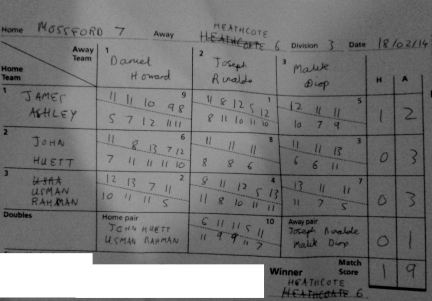 Home MOSSFORD 7 Away HEATHCOTE HEATHCOTE 6 Division 3 Date 18/02/14
Away Team 1 Daniel Howard 2 Joseph Rinaldo 3 Malik Diop H A
Home Team
1 JAMES ASHLEY
9
11 11 10 9 8
5 7 12 11 11
1
11 8 12 5 12
8 11 10 11 10
5
12 11 11
10 7 9
1 2
2 JOHN HUETT
6
11 8 13 7 12
7 11 11 11 10
8
8 6
3
11 11 13
6 6 11
0 3
3 USMAN RAHMAN
2
12 13 7 11
10 11 11 5
4
8 11 12 5 13
11 8 10 11 11
7
13 11 11
11 7 5
0 3
Doubles
Home pair
JOHN HUETT
USMAN RAHMAN
10
6 11 11 5 11
11 9 9 11 7
Away pair
Joseph Rinaldo
Malik Diop
0 1
Winner HEATHCOTE
HEATHCOTE 6
Match Score 1 9